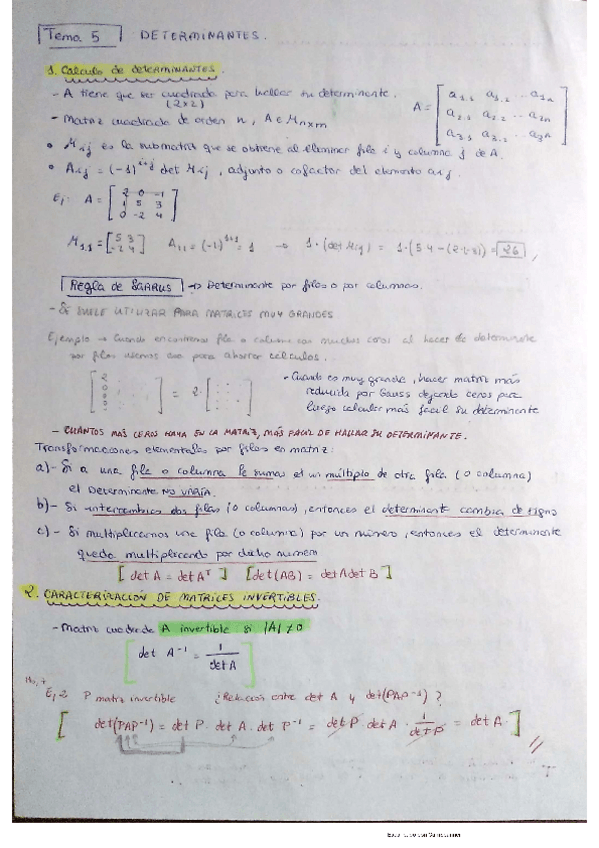 Tema 5 DETERMINANTES.
1. Cálculo de determinantes.
- A tiene que ser cuadrada para hallar su determinante.
(2x2)
A = [ a1.1 a1.2 ... a1n
a2.1 a2.2 ... a2n
a3.1 a3.2 ... a3n ]
- Matriz cuadrada de orden n, A∈Mnxm
• Mij es la submatriz que se obtiene al eliminar fila i y columna j de A.
• Aij = (-1)^i+j det Mij, adjunto o cofactor del elemento aij.
Ej: A = [ 2 0 -1
1 5 3
0 -2 4 ]
M1.1 = [ 5 3
-2 4 ] A11 = (-1)^1+1 = 1 → 1·(det Mij) = 1·(5·4-(-2·3)) = 26
Regla de SARRUS → Determinante por filas o por columnas.
- SE SUELE UTILIZAR PARA MATRICES MUY GRANDES
Ejemplo → Cuando encontremos fila o columna con muchos ceros al hacer de determinante
por filas usamos esa para ahorrar cálculos.
[ 2
0
0
0 ] = 2· [ ]
- Cuando es muy grande, hacer matriz más
reducida por Gauss dejando ceros para
luego calcular más fácil su determinante
- CUANTOS MÁS CEROS HAYA EN LA MATRIZ, MÁS FÁCIL DE HALLAR SU DETERMINANTE.
Transformaciones elementales por filas en matriz:
a)- Si a una fila o columna le sumas el un múltiplo de otra fila (o columna)
el Determinante NO VARÍA.
b)- Si intercambias dos filas (o columnas), entonces el determinante cambia de signo
c)- Si multiplicamos una fila (o columna) por un número, entonces el determinante
queda multiplicando por dicho numero
[ det A = det A^T ] [det(AB) = detAdetB ]
2. CARACTERIZACIÓN DE MATRICES INVERTIBLES.
- Matriz cuadrada A invertible si |A| ≠ 0
[ det A^-1 = 1/det A ]
Ej 2 P matriz invertible ¿Relación entre det A y det(PAP^-1)?
[ det(PAP^-1) = det P · det A · det P^-1 = det P · det A · 1/det P = det A· ]